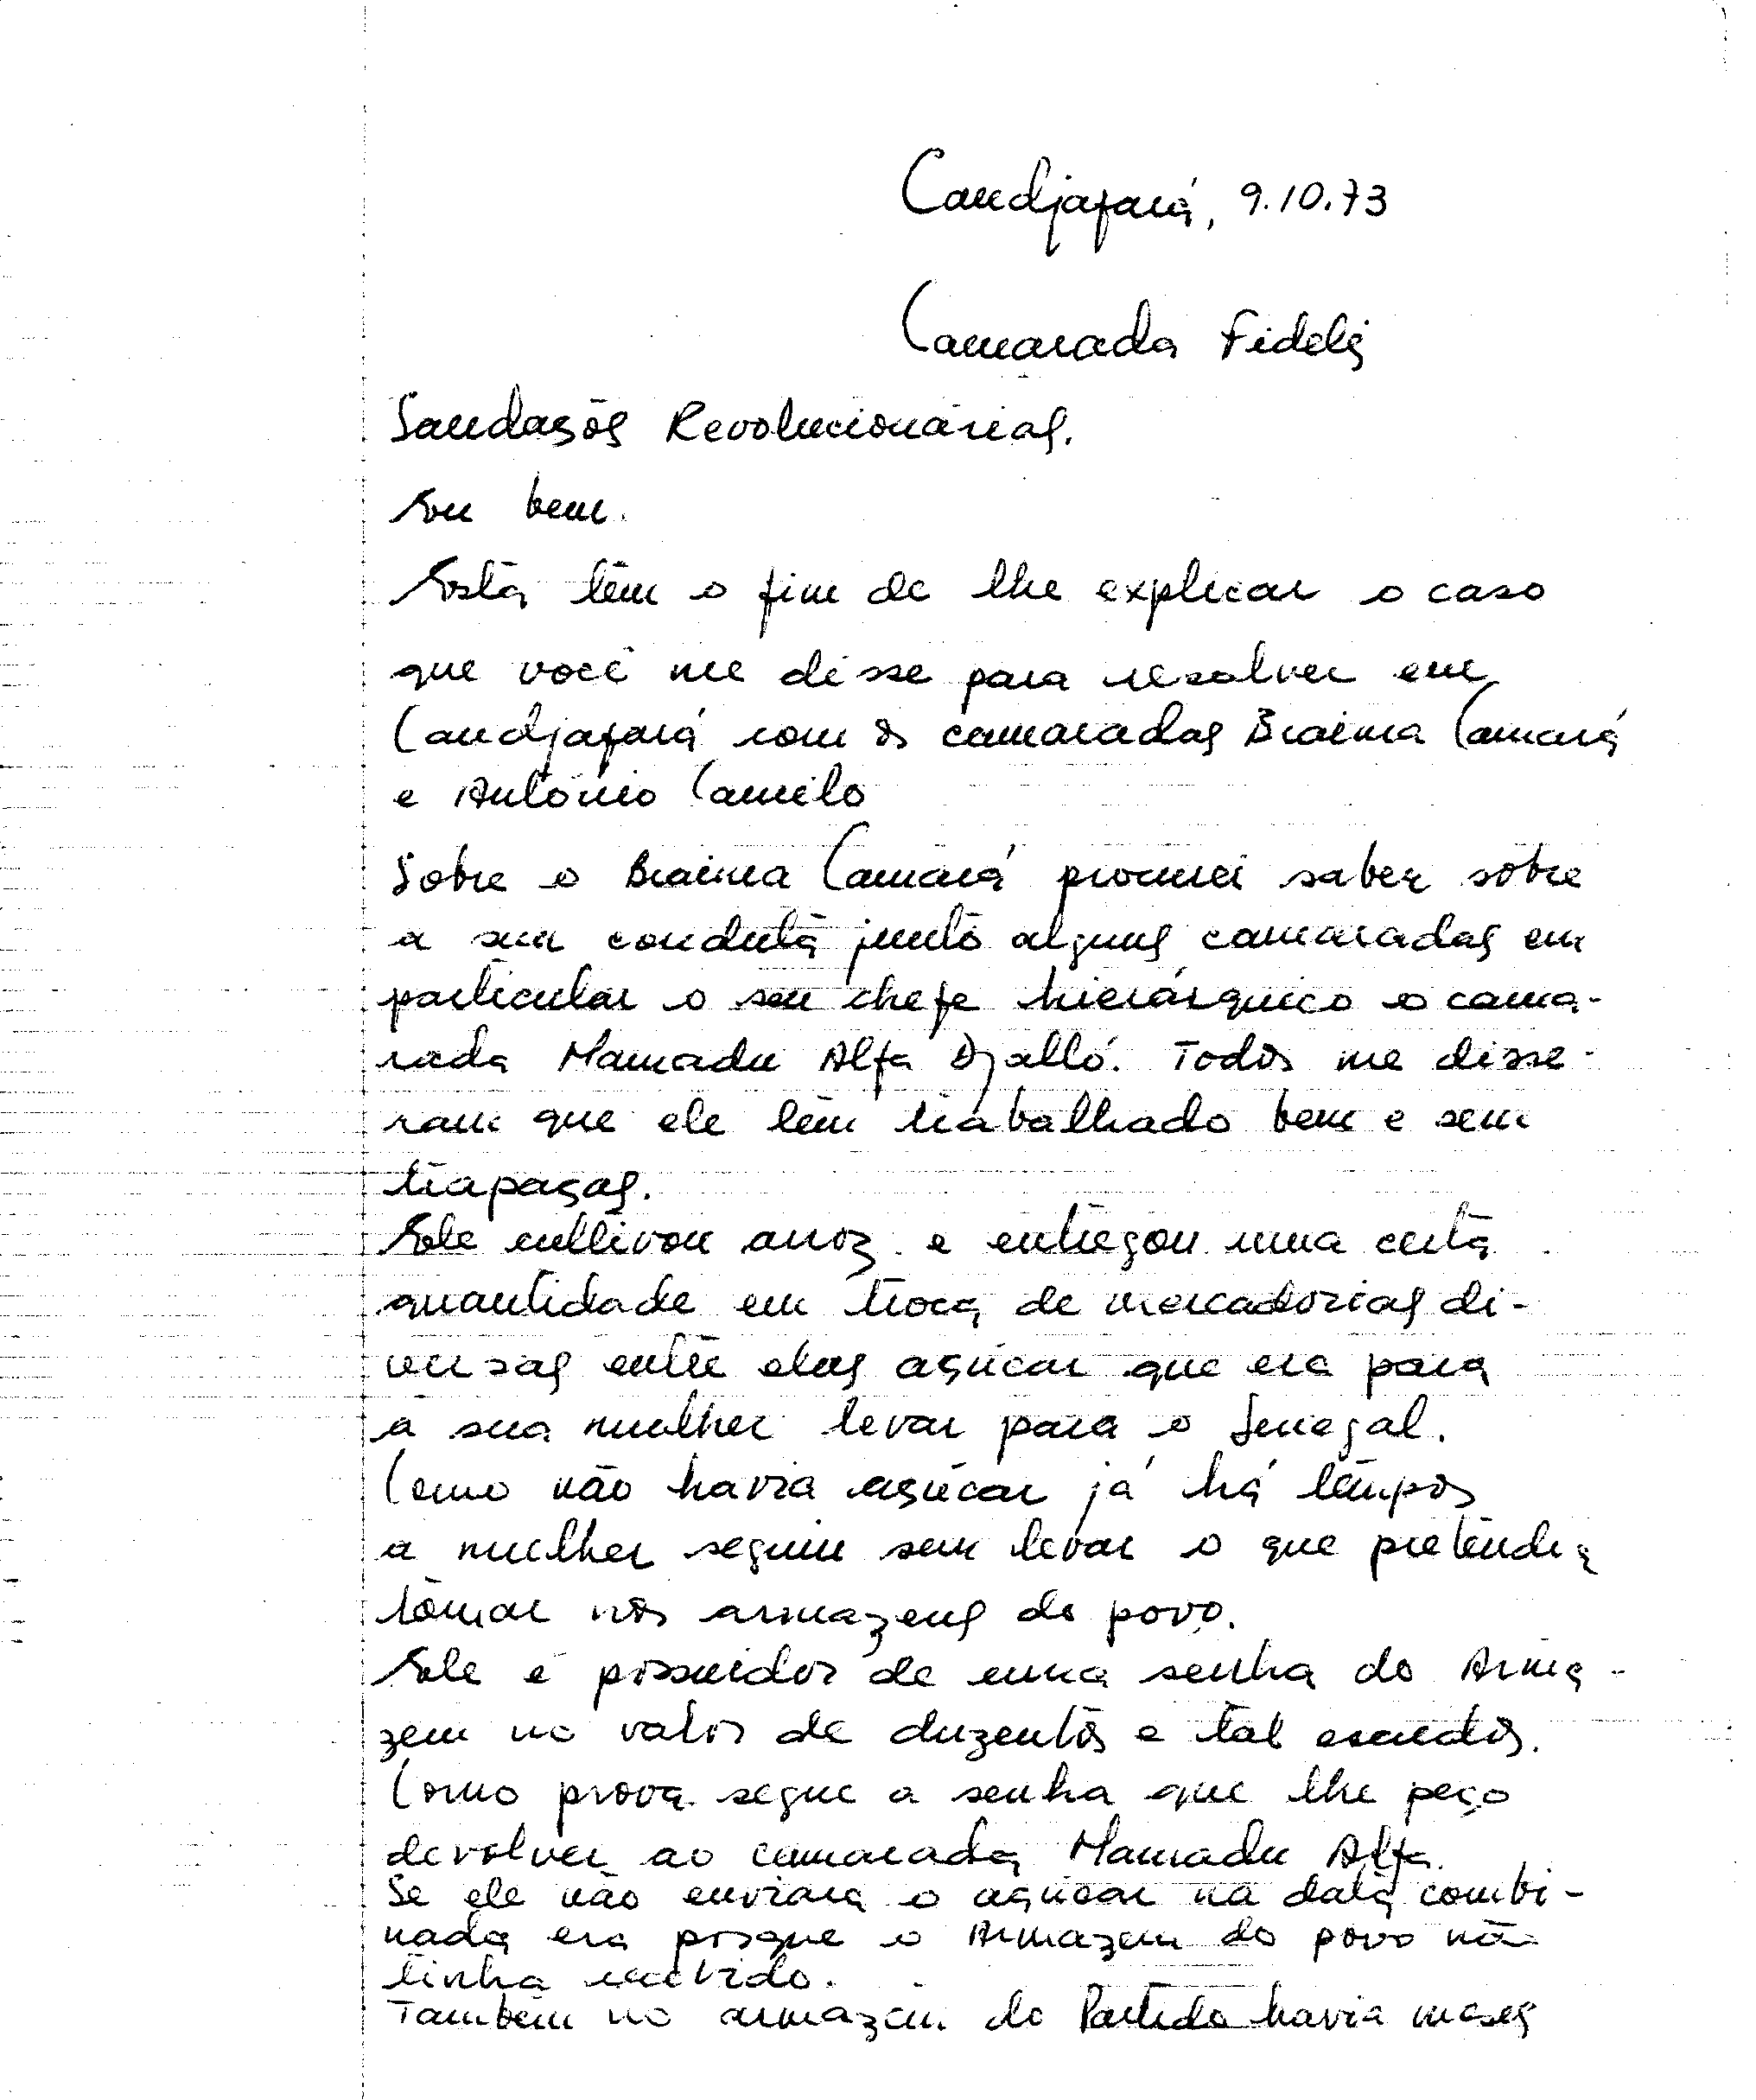 Candjafará, 9.10.73
Camarada Fidelis
Saudasões Revolucionárias.
Sou bem.
Esta têm o fim de lhe explicar o caso
que você me disse para resolver em
Candjafará com os camaradas Braima Camará
e António Camilo
Sobre o Braima Camará procurei saber sobre
a sua conduta junto alguns camaradas em
particular o seu chefe hierárquico o cama-
rada Mamadu Alfa Djalló. Todos me disse-
ram que ele têm trabalhado bem e sem
trapaças.
Ele cultivou arroz e entregou uma certa
quantidade em troca de mercadorias di-
versas entre elas açúcar que era para
a sua mulher levar para o Senegal.
Como não havia açúcar já há tempos
a mulher seguiu sem levar o que pretendia
tomar nos armazens do povo.
Ele é possuidor de uma senha do Arma-
zem no valor de duzentos e tal escudos.
Como prova segue a senha que lhe peço
devolver ao camarada Mamadu Alfa.
Se ele não enviara o açúcar na data combi-
nada era porque o Armazem do povo não
tinha recebido.
Também no armazém do Partido havia meses